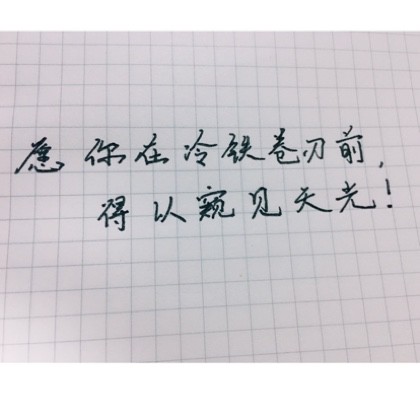 愿你在冷铁卷刃前,
得以窥见天光!